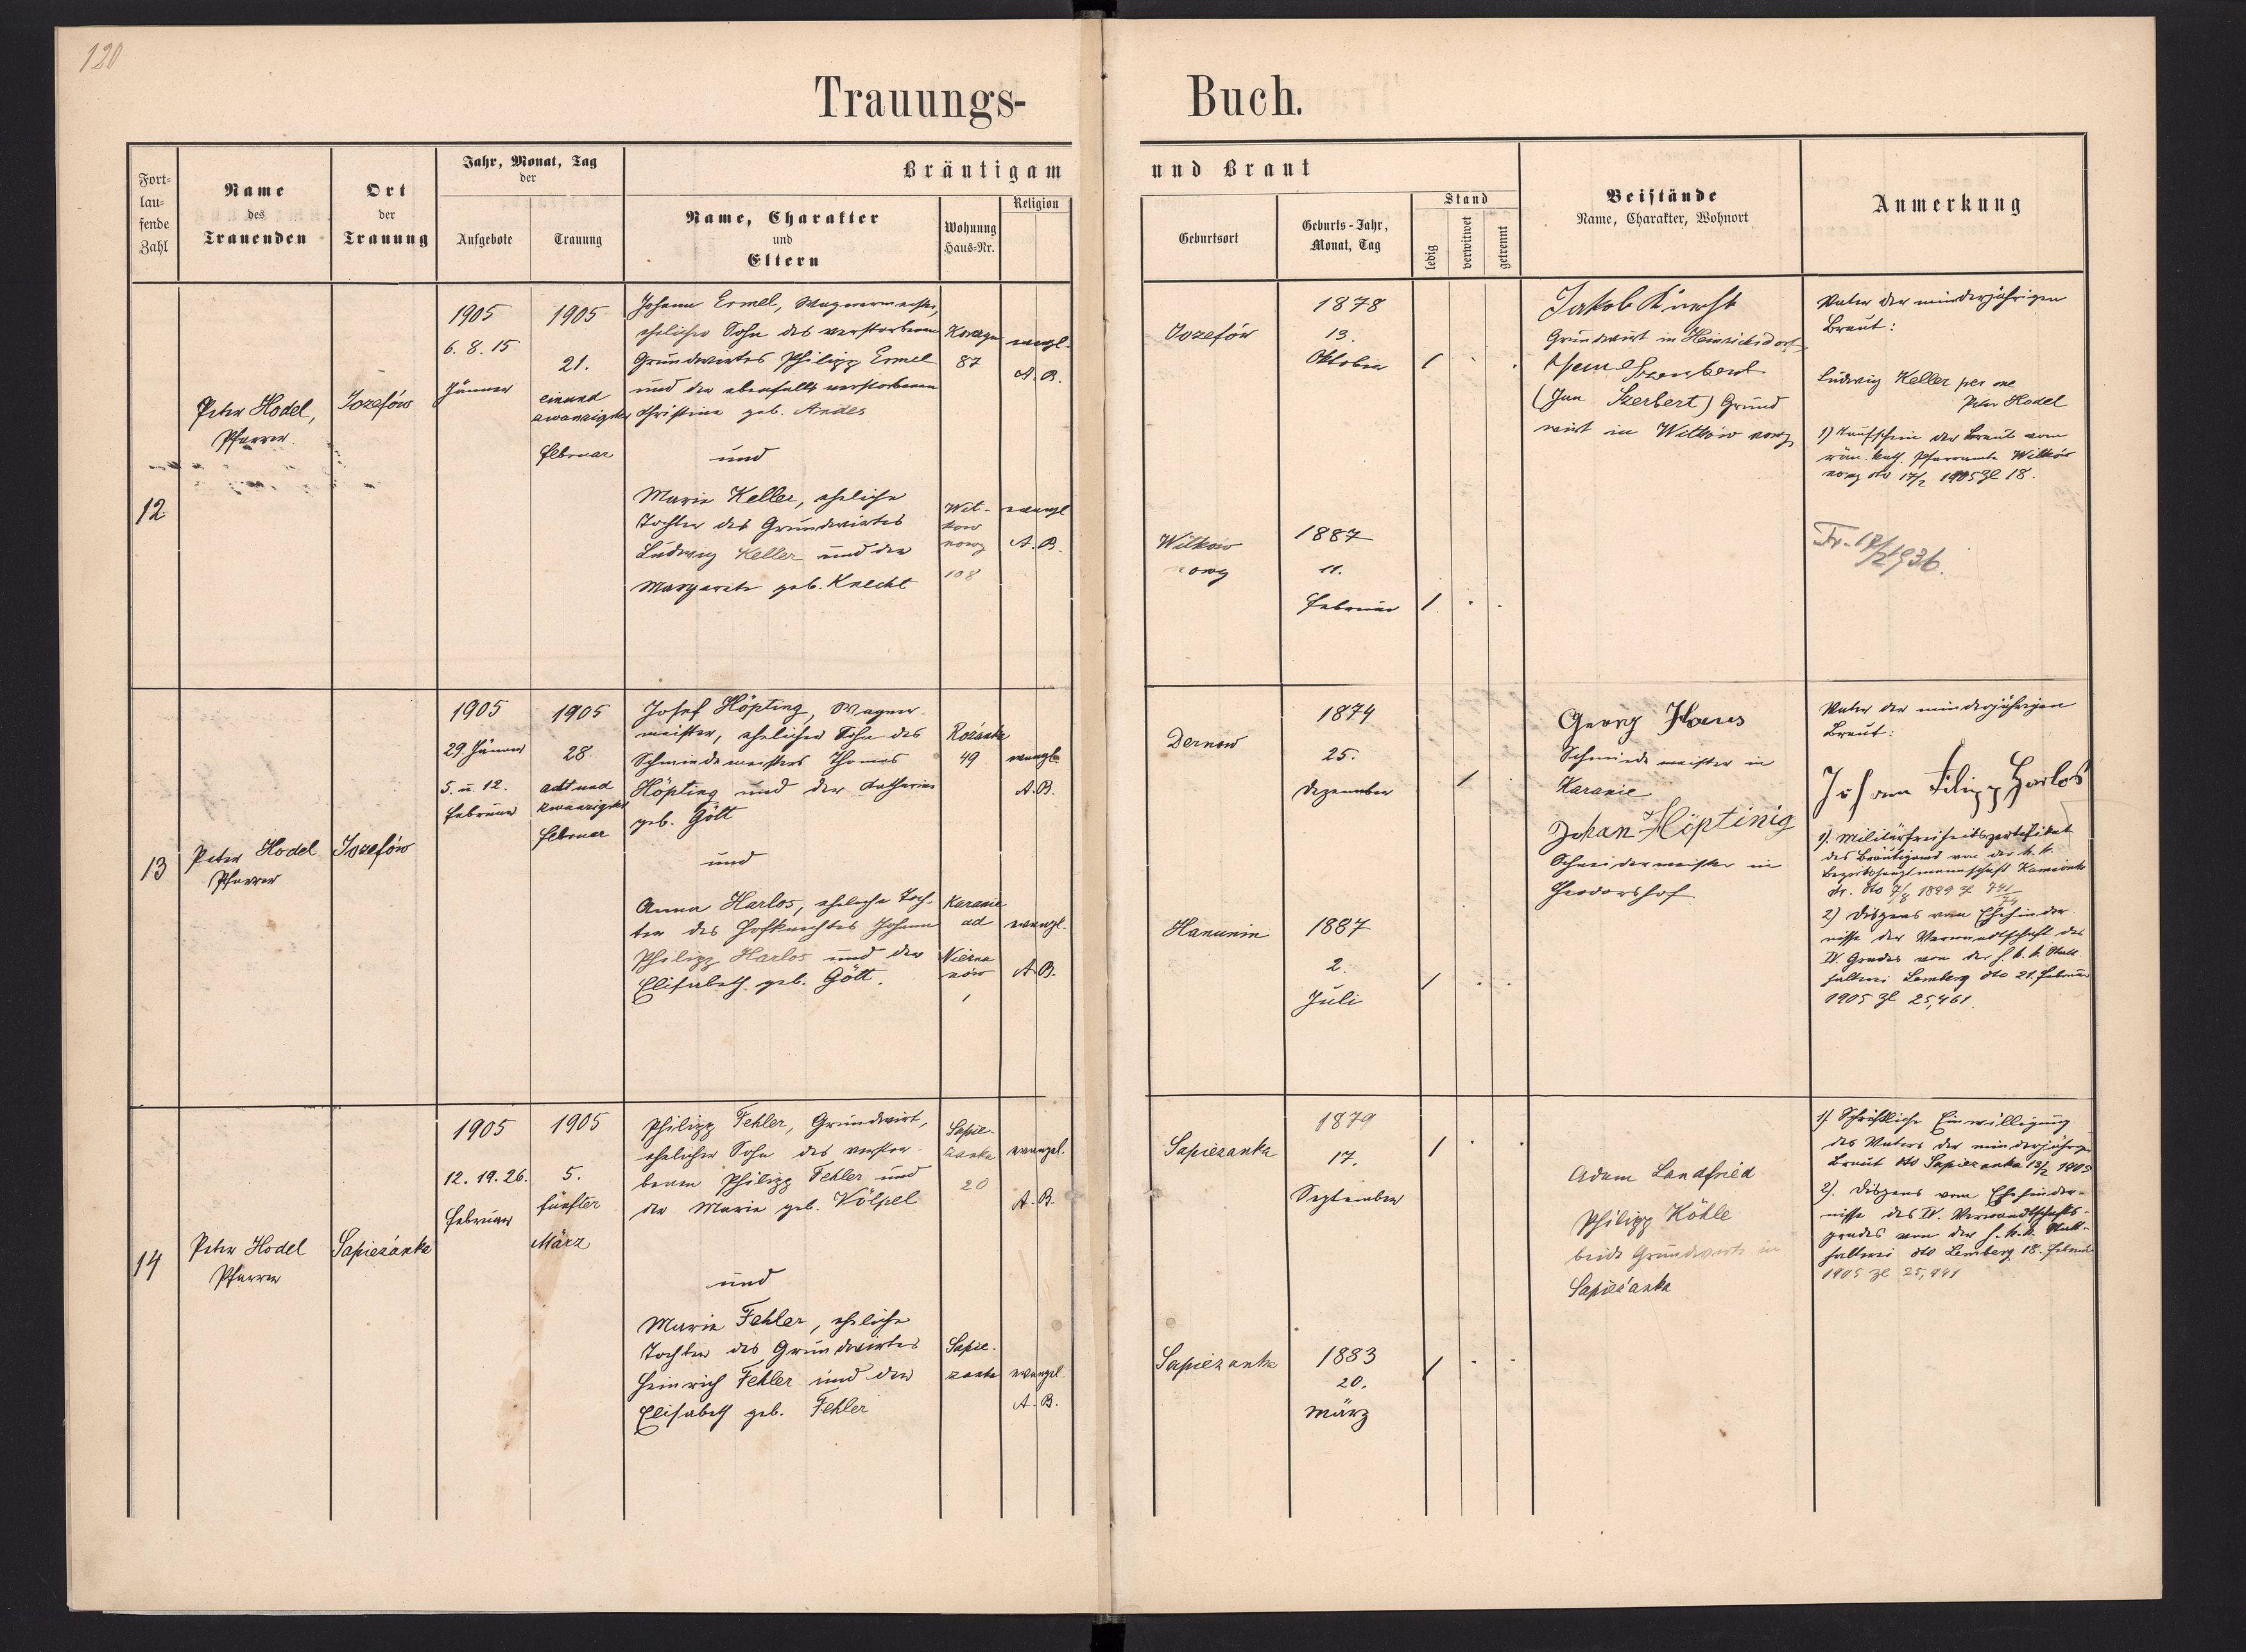 120
Trauungs-Buch.
Fort-
lau-
fende
Zahl
Name
des
Trauenden
Ort
der
Trauung
Jahr, Monat, Tag
der
Aufgebote
Trauung
Bräutigam und Braut
Name, Charakter
und
Eltern
Wohnung
Haus-Nr.
Religion
Geburtsort
Geburts-Jahr,
Monat, Tag
Stand
ledig
verwitwet
getrennt
Beistände
Name, Charakter, Wohnort
Anmerkung
12
Peter Hodel,
Pfarrer.
Jozefów
1905
6. 8. 15
Jänner
1905
21.
einund
zwanzigster
Februar
Johann Ermel, Wagnermeister,
ehelicher Sohn des verstorbenen
Grundwirtes Philipp Ermel
und der ebenfalls verstorbenen
Christine geb. Andes
und
Marie Keller, eheliche
Tochter des Grundwirtes
Ludwig Keller und der
Margarete geb. Knecht
87
evangl.
A. B.
Wit-
kow
nowy
108
evangl
A. B.
Jozefów
1878
13.
Oktober
Witkow
nowy
1887
11.
Februar
Jakob Knecht
Grundwirt in Heinrichsdorf
(Jan Szerbert) Grund
wirt in Witków nowy
Vater der minderjährigen
Braut:
Ludwig Keller per me
Peter Hodel
1) Taufschein der Braut vom
röm. kath. Pfarramte Witków
nowy dto 17/2 1905 Zl 18.
Tr. 17/2 1936.
13
Peter Hodel
Pfarrer
Jozefów
1905
29. Jänner
5. u. 12.
Februar
1905
28
acht und
zwanzigster
Februar
Josef Höpting, Wagner-
meister, ehelicher Sohn des
Schmiedemeisters Thomas
Höpting und der Katharina
geb. Gött
und
Anna Harlos, eheliche Toch-
ter des Hofknechtes Johann
Philipp Harlos und der
Elisabeth geb. Gött.
Rożanka
49
evangl.
A. B.
Karanie
ad
Niezna
nów
1
evangl.
A. B.
Dernow
1874
25.
Dezember
Hanunin
1887
2.
Juli
Georg Haus
Schmiedemeister in
Karanie
Johan Höptinig
Schneidermeister in
Theodorshof
Vater der minderjährigen
Braut:
Johann Filipp Harlos
1). Militärfreiheitszertifikat
des Bräutigams von der k. k.
Bezirkshauptmannschaft Kamionka
2) Dispens vom Ehehinder-
nisse der Verwandtschaft des
IV. Grades von der h. k. k. Statt-
halterei Lemberg dto 21. Februar
1905 Zl 25,461.
14
Peter Hodel
Pfarrer
Sapieżanka
1905
12. 19. 26.
Februar
1905
5.
fünfter
März
Philipp Fehler, Grundwirt,
ehelicher Sohn des verstor-
benen Philipp Fehler und
der Marie geb. Völpel
und
Marie Fehler, eheliche
Tochter des Grundwirtes
Heinrich Fehler und der
Elisabeth geb. Fehler
Sapie-
zanka
20
evangel.
A. B.
Sapie-
zanka
evangel.
A. B.
Sapiezanka
1879
17.
September
Sapiezanka
1883
20.
März
Adam Landfried
Philipp Köhle
beide Grundwirte in
Sapieżanka
1). Schriftliche Einwilligung
des Vaters der minderjährigen
Braut dto Sapiezanka 13/2 1905
2). Dispens vom Ehehinder-
nisse des IV. Verwandtschafts-
grades von der h. k. k. Statt-
halterei dto Lemberg 18. Februar
1905 Zl 25,941